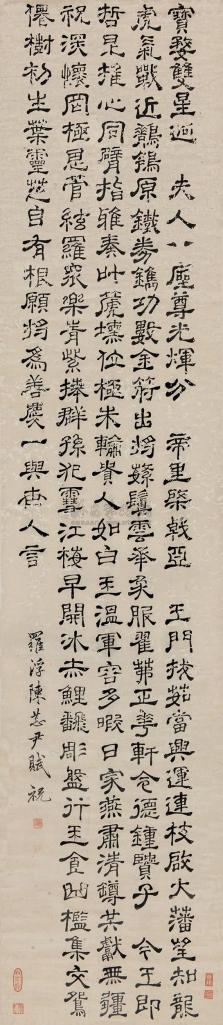 寶婺雙星迎 夫人八座尊光輝分 帝里棨戟亞 王門拔茹當興運連枝啟大藩望知龍
虎氣戰近鶺鴒原鐵券鐫功數金符出將蘇鬢雲 服翟茀正 軒令德鍾賢子 今王即
哲昆雄心同臂指雅奏叶篪壎位極未輸貴人如白玉溫軍容多暇日家燕肅清罇共獻無疆
祝深懷罔極恩管絃羅眾樂青紫捧群孫犯雪江梅早開冰赤鯉翻彫盤行玉食曲檻集文鴛
僊樹初生葉靈芝自有根願將為善慶一與世人言
羅浮陳恭尹賦祝